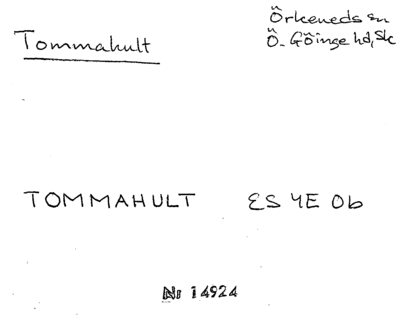 Tommahult
Örkeneds sn
Ö. Göinge hd, Sk
TOMMAHULT ES 4E 0b
Nr 14924